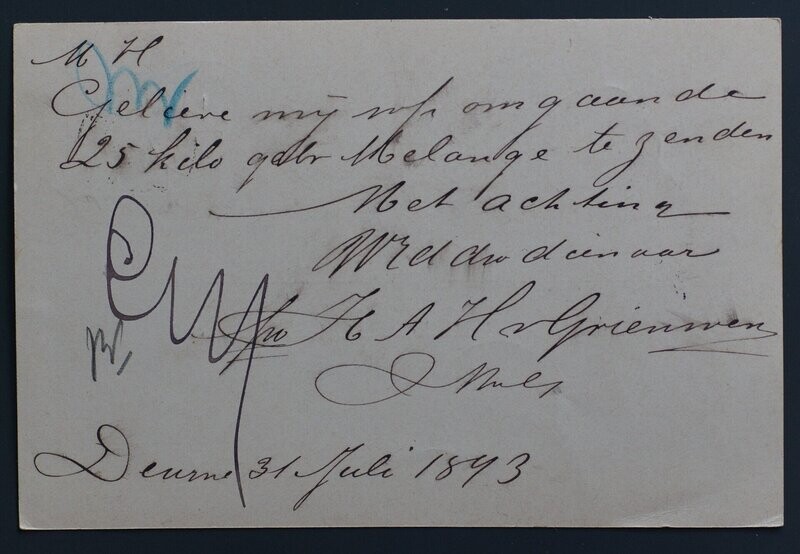 M H
Gelieve mij p/s omgaande
25 kilo gebr Melange te zenden
Met achting
UEd dw dienaar
H A H v Grienwen
Deurne 31 Juli 1893